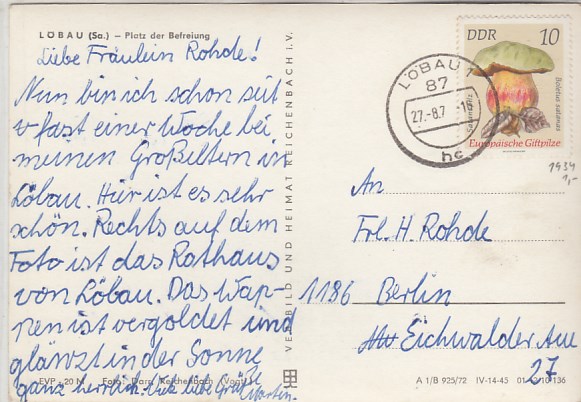 LÖBAU (Sa.) – Platz der Befreiung
Liebe Fräulein Rohde!
Nun bin ich schon seit
fast einer Woche bei
meinen Großeltern in
Löbau. Hier ist es sehr
schön. Rechts auf dem
Foto ist das Rathaus
von Löbau. Das Wap-
pen ist vergoldet und
glänzt in der Sonne
ganz herrlich. liebe Grüße
Martin.
EVP -20 M Foto: Darr, Reichenbach (Vogtl.)
VEB BILD UND HEIMAT REICHENBACH I. V.
DDR 10
Boletus satanas
Satanspilz
Europäische Giftpilze
LÖBAU 1
87
27.-8.7
hc
1934
1,-
An
Frl. H. Rohde
1186 Berlin
Eichwalder Aue
27
A 1/B 925/72 IV-14-45 01 136